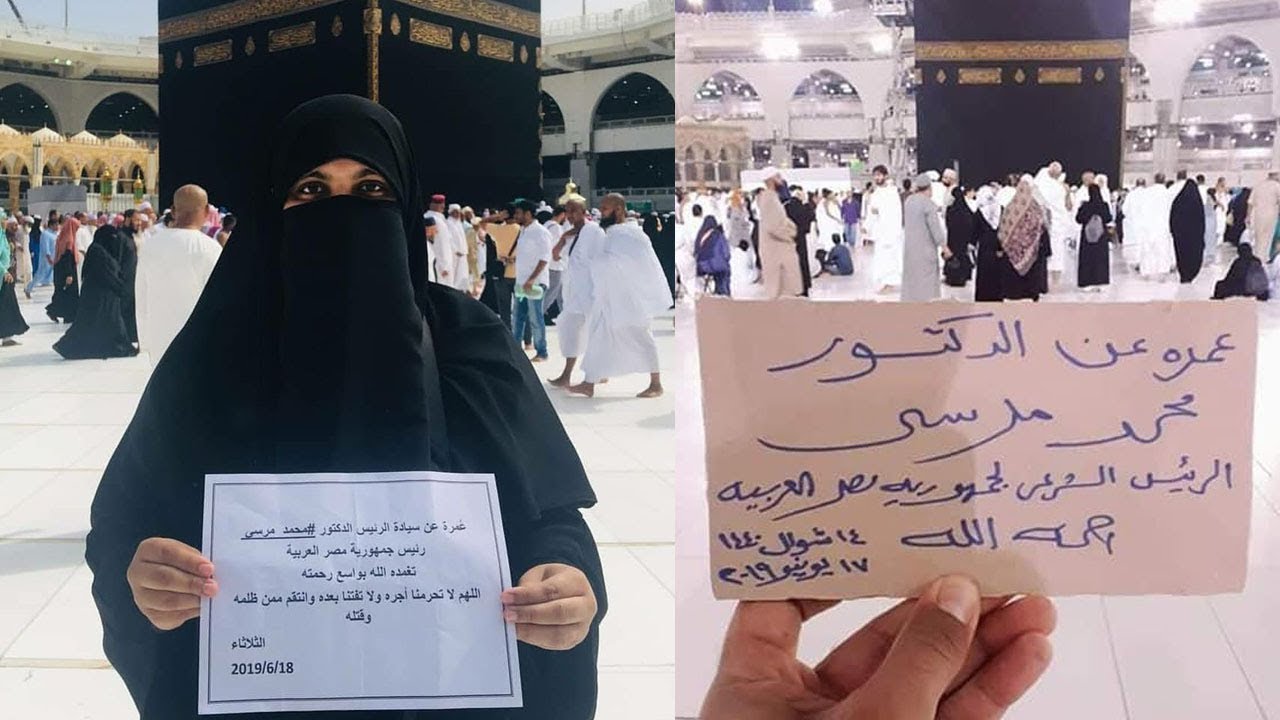 عمرة عن سيادة الرئيس الدكتور #محمد_مرسي
رئيس جمهورية مصر العربية
تغمده الله بواسع رحمته
اللهم لا تحرمنا أجره ولا تفتنا بعده وانتقم ممن ظلمه
وقتله
الثلاثاء
2019/6/18
عمره عن الدكتور
محمد مرسى
الرئيس الشرعى لجمهوريه مصر العربيه
رحمه الله
١٤ شوال ١٤٤٠
١٧ يونيو ٢٠١٩